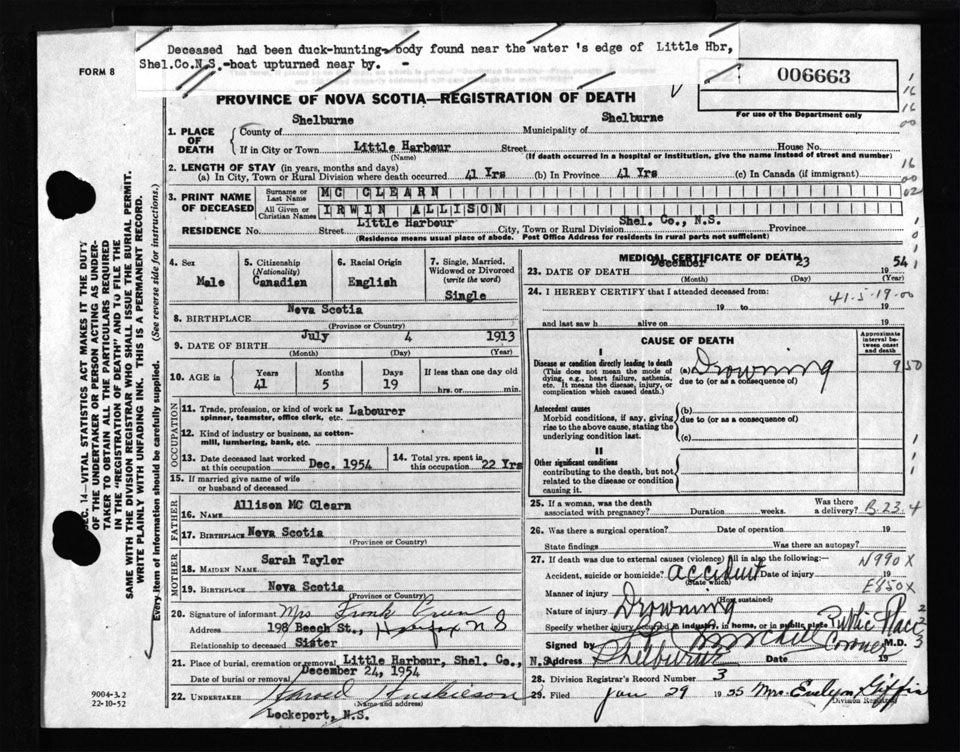 Deceased had been duck-hunting- body found near the water 's edge of Little Hbr,
Shel.Co.N.S.-boat upturned near by. -
FORM 8
006663
PROVINCE OF NOVA SCOTIA—REGISTRATION OF DEATH
For use of the Department only
1. PLACE OF DEATH
County of Shelburne Municipality of Shelburne
If in City or Town Little Harbour Street House No.
(Name) (If death occurred in a hospital or institution, give the name instead of street and number)
2. LENGTH OF STAY (in years, months and days)
(a) In City, Town or Rural Division where death occurred 41 Yrs (b) In Province 41 Yrs (c) In Canada (if immigrant)
3. PRINT NAME OF DECEASED
Surname or Last Name MC CLEARN
All Given or Christian Names IRWIN ALLISON
RESIDENCE No. Street Little Harbour City, Town or Rural Division Shel. Co., N.S. Province
(Residence means usual place of abode. Post Office Address for residents in rural parts not sufficient)
4. Sex
Male
5. Citizenship
(Nationality)
Canadian
6. Racial Origin
English
7. Single, Married, Widowed or Divorced
(write the word)
Single
8. BIRTHPLACE Nova Scotia
(Province or Country)
9. DATE OF BIRTH July 4 1913
(Month) (Day) (Year)
10. AGE in
Years Months Days If less than one day old
41 5 19 hrs. or min.
OCCUPATION
11. Trade, profession, or kind of work as spinner, teamster, office clerk, etc. Labourer
12. Kind of industry or business, as cotton-mill, lumbering, bank, etc.
13. Date deceased last worked at this occupation Dec. 1954
14. Total yrs. spent in this occupation 22 Yrs
15. If married give name of wife or husband of deceased
FATHER
16. NAME Allison MC Clearn
17. BIRTHPLACE Nova Scotia
(Province or Country)
MOTHER
18. MAIDEN NAME Sarah Taylor
19. BIRTHPLACE Nova Scotia
(Province or Country)
20. Signature of informant Mrs Frank
Address 198 Beech St., Halifax N S
Relationship to deceased Sister
21. Place of burial, cremation or removal Little Harbour, Shel. Co., N.S.
Date of burial or removal December 24, 1954
22. UNDERTAKER Harold Huskilson
(Name and address)
Lockeport, N.S.
MEDICAL CERTIFICATE OF DEATH
23. DATE OF DEATH December 23 1954
(Month) (Day) (Year)
24. I HEREBY CERTIFY that I attended deceased from:
41-5-19-00
19 to 19
and last saw h alive on 19
CAUSE OF DEATH
Approximate interval between onset and death
I
Disease or condition directly leading to death
(This does not mean the mode of dying, e.g., heart failure, asthenia, etc. It means the disease, injury, or complication which caused death.)
(a) Drowning
due to (or as a consequence of)
950
Antecedent causes
Morbid conditions, if any, giving rise to the above cause, stating the underlying condition last.
(b)
due to (or as a consequence of)
(c)
II
Other significant conditions
contributing to the death, but not related to the disease or condition causing it.
25. If a woman, was the death associated with pregnancy? Duration weeks. Was there a delivery?
B.23.4
26. Was there a surgical operation? Date of operation 19
State findings Was there an autopsy?
27. If death was due to external causes (violence) fill in also the following:
N990X
Accident, suicide or homicide? accident Date of injury 19
(State which)
Manner of injury E850X
(How sustained)
Nature of injury Drowning
Specify whether injury occurred in industry, in home, or in public place Public Place
Signed by Coroner M.D.
Address Shelburne Date 19
28. Division Registrar's Record Number 3
29. Filed Jan 29 1955 Mrs. Evelyn Giffin
Division Registrar
SEC. 14—VITAL STATISTICS ACT MAKES IT THE DUTY
OF THE UNDERTAKER OR PERSON ACTING AS UNDER-
TAKER TO OBTAIN ALL THE PARTICULARS REQUIRED
IN THE "REGISTRATION OF DEATH" AND TO FILE THE
SAME WITH THE DIVISION REGISTRAR WHO SHALL ISSUE THE BURIAL PERMIT.
WRITE PLAINLY WITH UNFADING INK. THIS IS A PERMANENT RECORD.
Every item of information should be carefully supplied. (See reverse side for instructions.)
9004-3.2
22-10-52